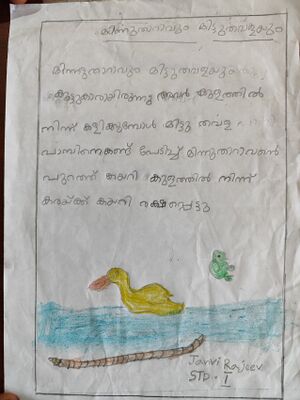 മിന്നുതാറാവും മിട്ടുതവളയും
മിന്നുതാറാവും മിട്ടുതവളയും
കൂട്ടുകാരായിരുന്നു അവർ കുളത്തിൽ
നിന്ന് കളിക്കുമ്പോൾ മിട്ടു തവള
പാമ്പിനെകണ്ട് പേടിച്ച് മിന്നുതാറാവിൻ്റെ
പുറത്ത് കയറി കുളത്തിൽ നിന്ന്
കരയ്ക്ക് കയറി രക്ഷപ്പെട്ടു
Janvi Rajeev
STD - I